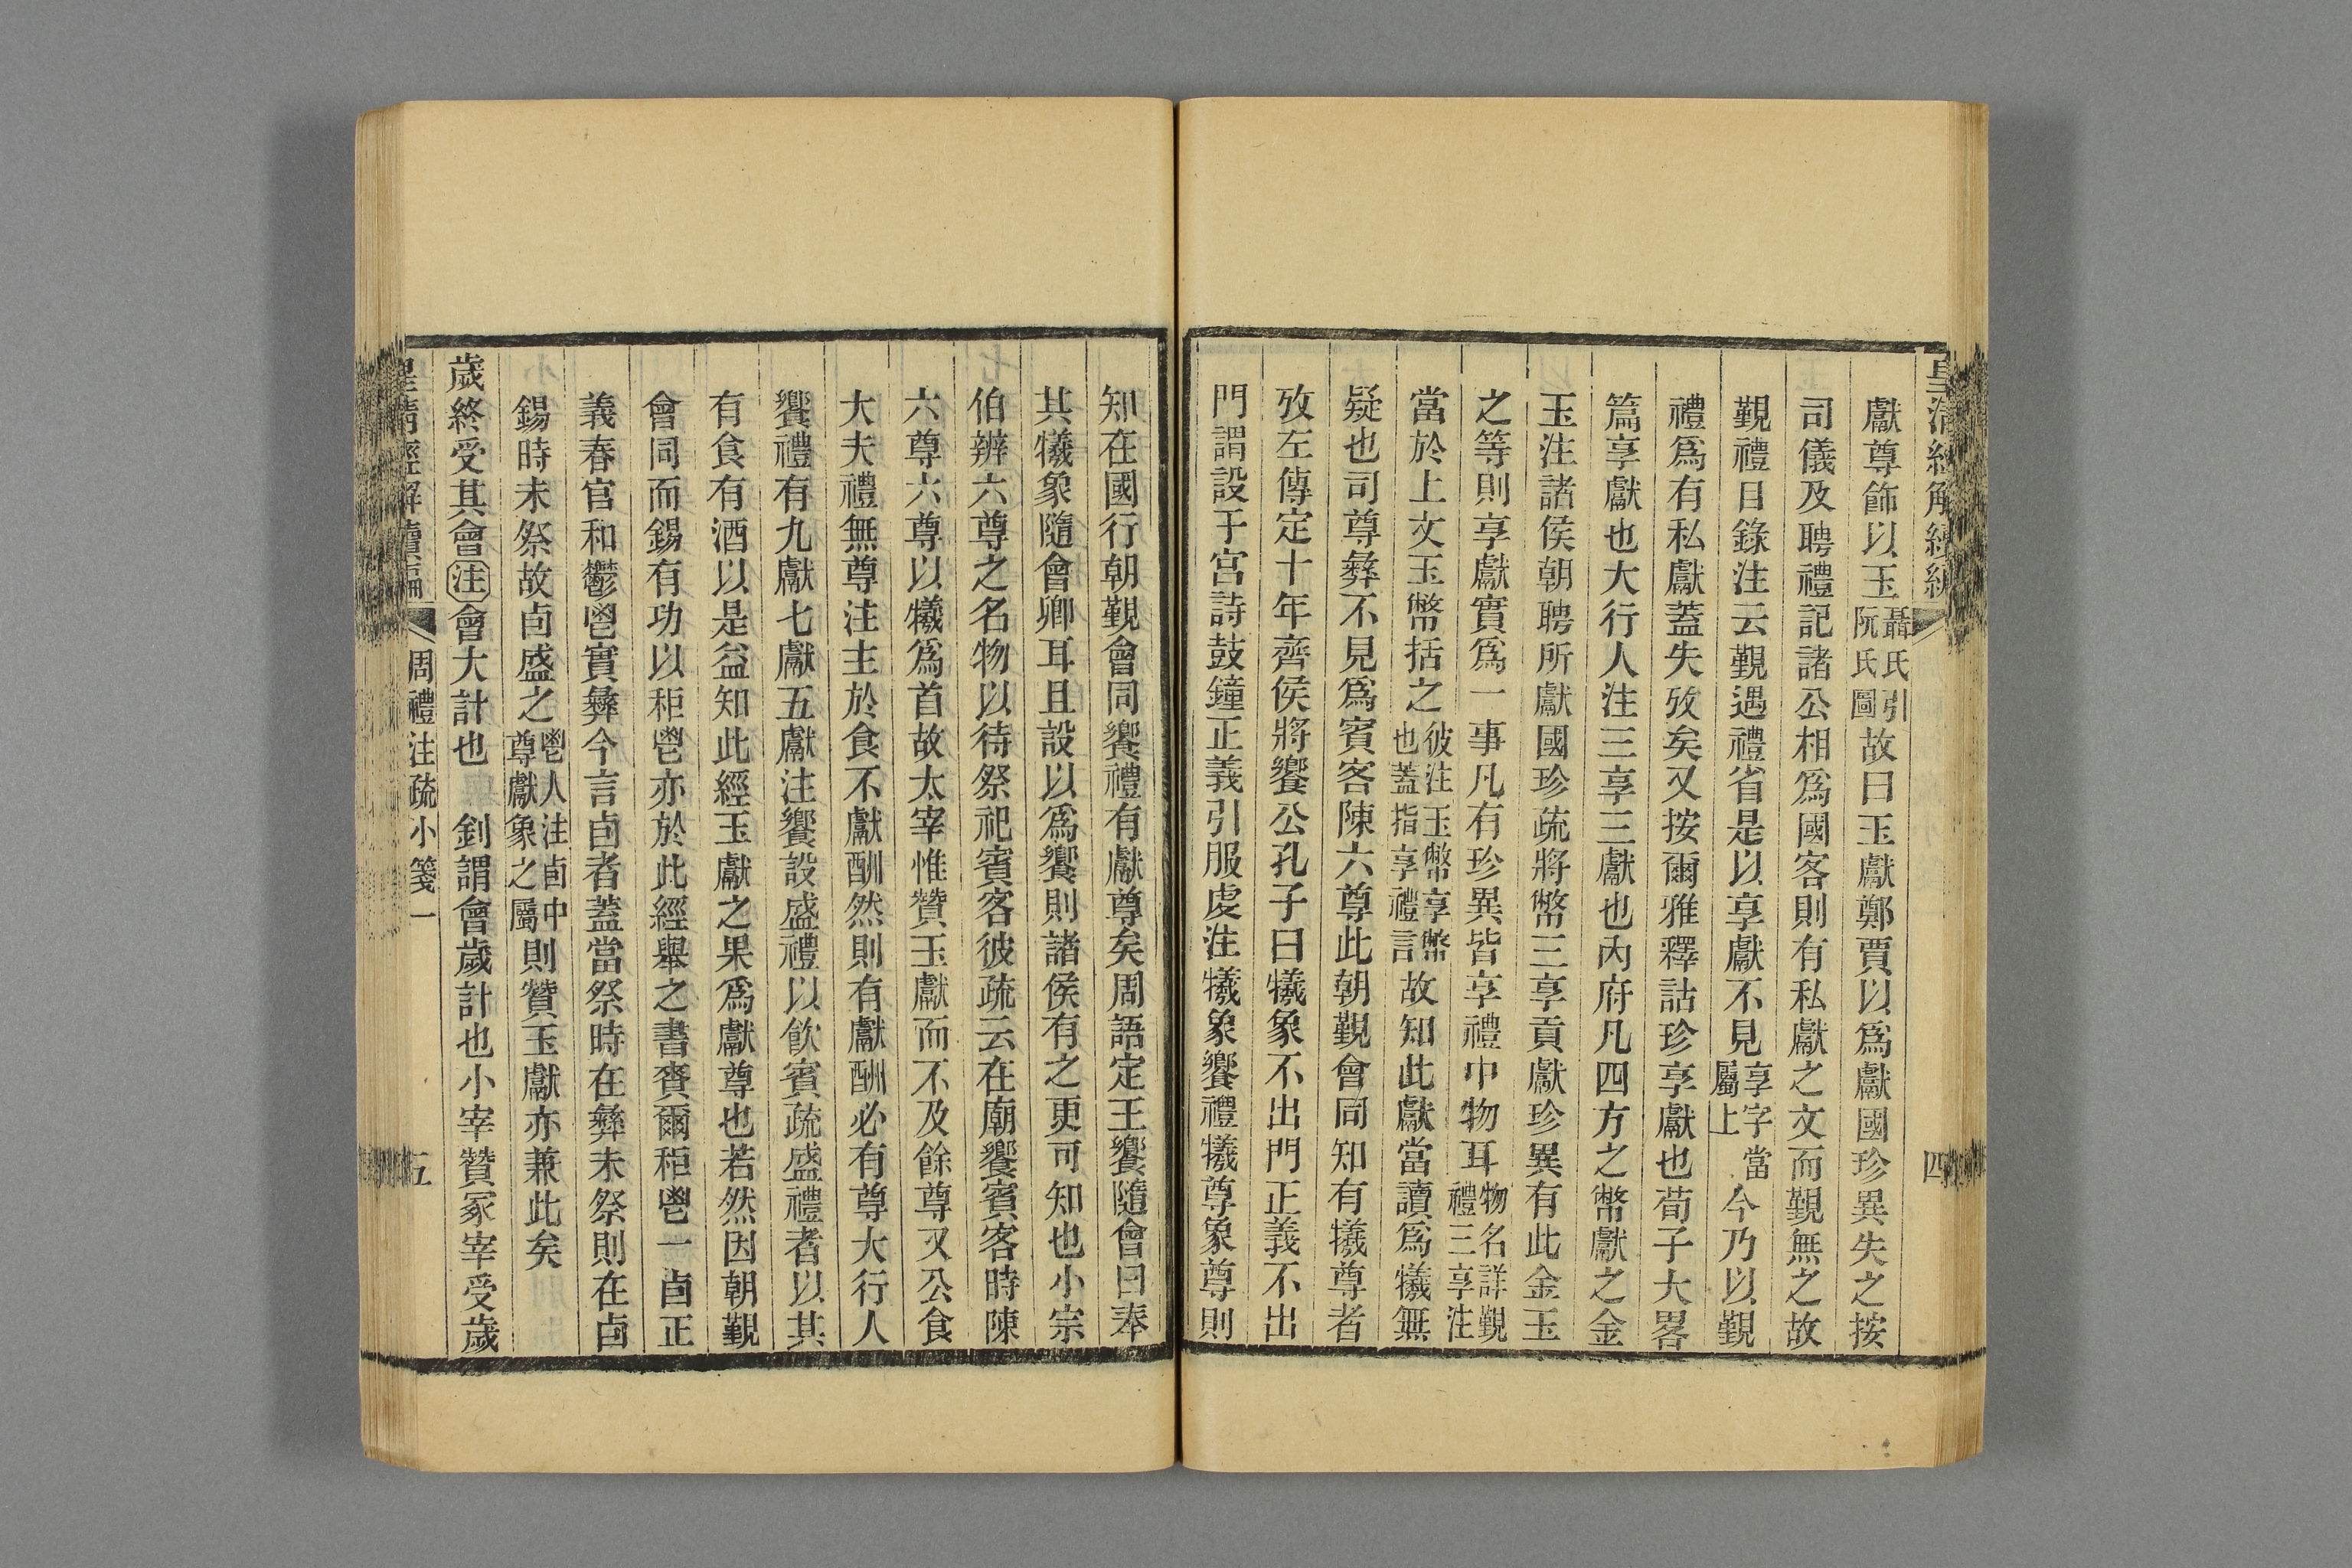 皇清經解續編
四
獻尊飾以玉聶氏引阮氏圖故曰玉獻鄭賈以爲獻國珍異失之按
司儀及聘禮記諸公相爲國客則有私獻之文而覲無之故
覲禮目錄注云覲遇禮省是以享獻不見享字當屬上今乃以覲
禮爲有私獻蓋失攷矣又按爾雅釋詁珍享獻也荀子大畧
篇享獻也大行人注三享三獻也內府凡四方之幣獻之金
玉注諸侯朝聘所獻國珍疏將幣三享貢獻珍異有此金玉
之等則享獻實爲一事凡有珍異皆享禮中物耳物名詳覲禮三享注
當於上文玉幣括之彼注玉幣享幣也蓋指享禮言故知此獻當讀爲犧無
疑也司尊彝不見爲賓客陳六尊此朝覲會同知有犧尊者
攷左傳定十年齊侯將饗公孔子曰犧象不出門正義不出
門謂設于宮詩鼓鐘正義引服虔注犧象饗禮犧尊象尊則
知在國行朝覲會同饗禮有獻尊矣周語定王饗隨會曰奉
其犧象隨會卿耳且設以爲饗則諸侯有之更可知也小宗
伯辨六尊之名物以待祭祀賓客彼疏云在廟饗賓客時陳
六尊六尊以犧爲首故太宰惟贊玉獻而不及餘尊又公食
大夫禮無尊注主於食不獻酬然則有獻酬必有尊大行人
饗禮有九獻七獻五獻注饗設盛禮以飮賓疏盛禮者以其
有食有酒以是益知此經玉獻之果爲獻尊也若然因朝覲
會同而錫有功以秬鬯亦於此經舉之書賚爾秬鬯一卣正
義春官和鬱鬯實彝今言卣者蓋當祭時在彝未祭則在卣
錫時未祭故卣盛之鬯人注卣中尊獻象之屬則贊玉獻亦兼此矣
歲終受其會注會大計也 釗謂會歲計也小宰贊冢宰受歲
皇淸經解續編
周禮注疏小箋一
五